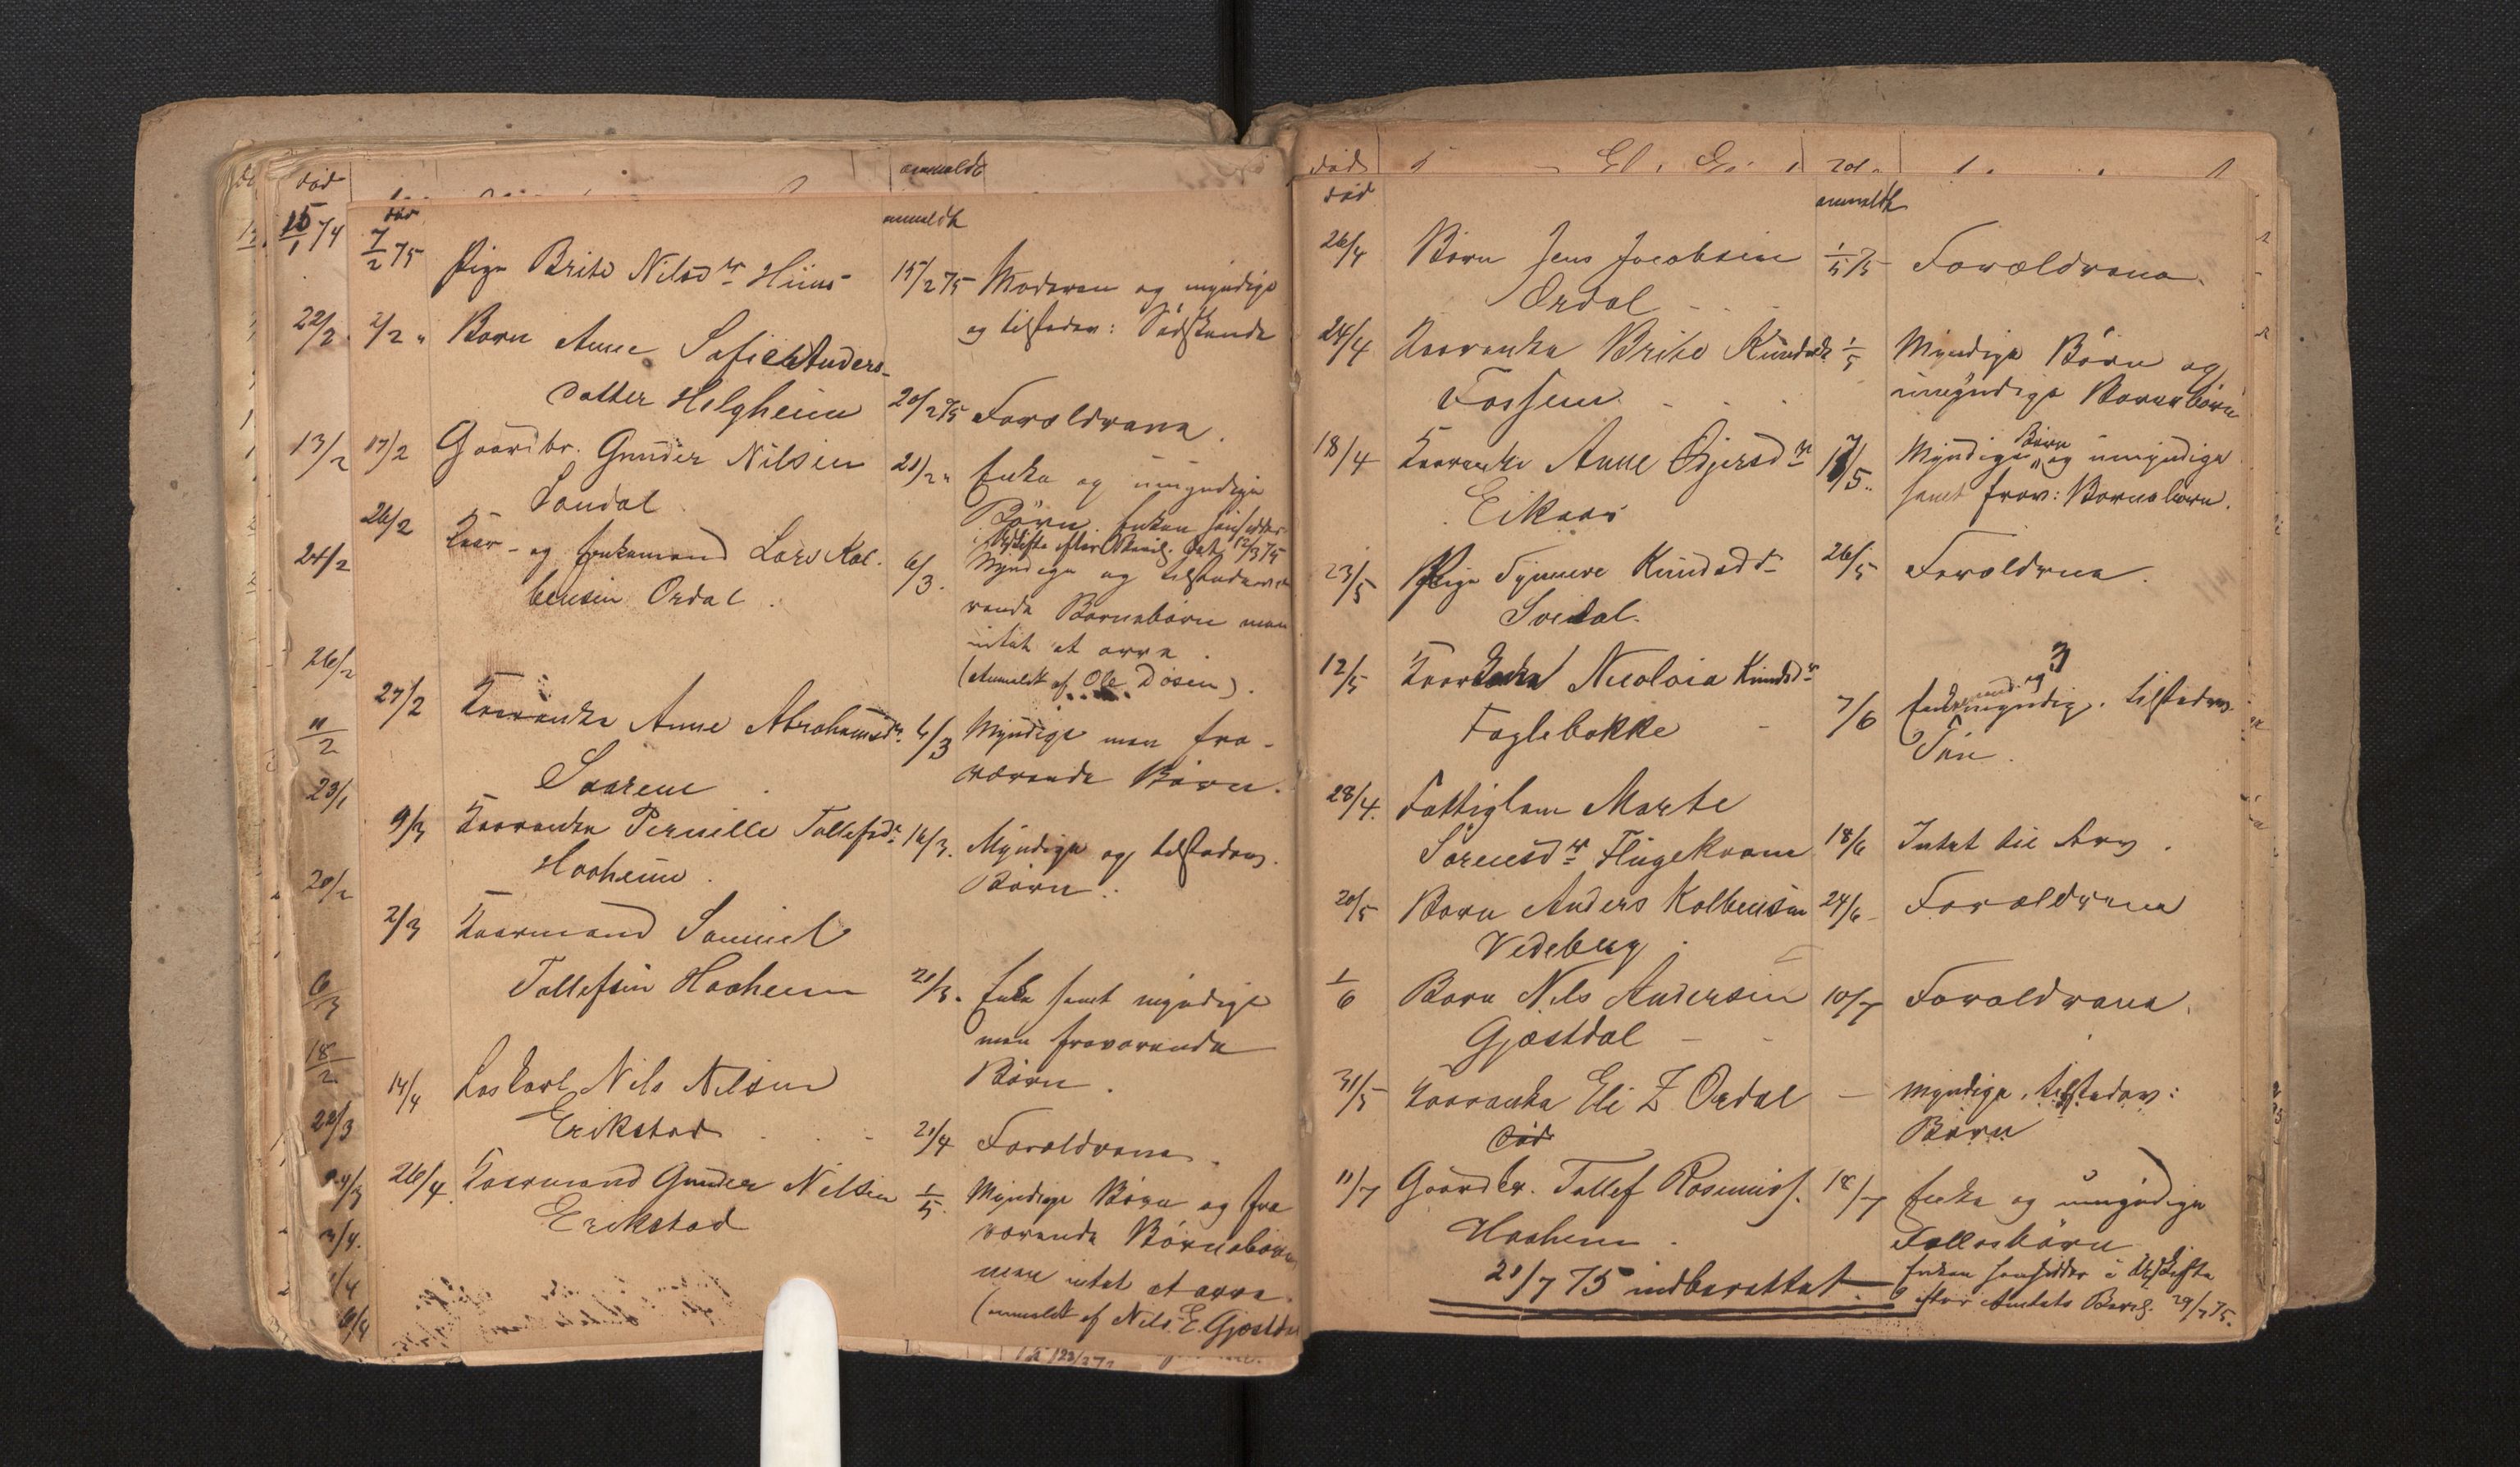 død
anmeldt
7/2 75 Pige Brite Nilsdr Hiuus
15/2 75 Moderen og myndige
og tilstedev: Sødskende
2/2 " Barn Anne Sofie Anders-
datter Helgheim
20/2 75 Forældrene.
17/2 Gaardbr. Gunder Nilsen
Sandal
21/2 " Enke og umyndige
Børn. Enken hensidder
i Uskifte efter Bevilg. dat. 12/3 75
26/2 Kaar- og Enkemand Lars Kol-
bensen Ordal.
6/3. Myndige og tilstedevæ-
rende Børnebørn men
intet at arve.
(Anmeldt af Ole Døsen).
27/2 Kaarenke Anne Abrahamsdr.
Saarene
6/3 Myndige men fra-
værende Børn.
9/3 Kaarenke Pernille Tollefsdr.
Haaheim.
16/3. Myndige og tilstedev.
Børn.
2/3 Kaarmand Samuel
Tollefsen Haaheim
21/3. Enke samt myndige
men fraværende
Børn.
14/4 Løskarl Nils Nilsen
Erikstad
21/4 Forældrene.
26/4. Kaarmand Gunder Nilsen
Erikstad
1/5. Myndige Børn og fra
værende Børnebørn
men intet at arve.
(anmeldt af Nils E. Gjæstdal
død
anmeldt
26/4 Barn Jens Jacobsen
Ordal
1/5 75 Forældrene.
24/4 Kaarenke Brite Knudsdr
Fossem
1/5 Myndige Børn og
umyndige Børnebørn
18/4 Kaarenke Anne Østjersdr
Eikaas
17/5. Myndige Børn og umyndige
samt frav: Børnebørn.
23/5 Pige Synneve Knudsdr
Sveidal.
26/5 Forældrene.
12/5 Kaarkone Nicolaia Knudsdr
Foglebakke
7/6 Enkemand og 3 myndig. tilstedev.
Søn.
28/4. Fattiglem Marte
Sørensdr Flugekvam
18/6 Intet til Arv.
20/5 Barn Anders Kolbensen
Vedeberg.
24/6 Forældrene
1/6 Barn Nils Andersen
Gjæstdal
10/7 Forældrene.
31/5 Kaarenke Eli Z Ordal
død
— Myndige, tilstedev:
Børn
11/7 Gaardbr. Tollef Rasmuss.
Haaheim.
18/7 Enke og umyndige
Fællesbørn
Enken hensidder i Uskifte
efter Amtets Bevilg. 29/7 75.
21/7 75 indberettet.